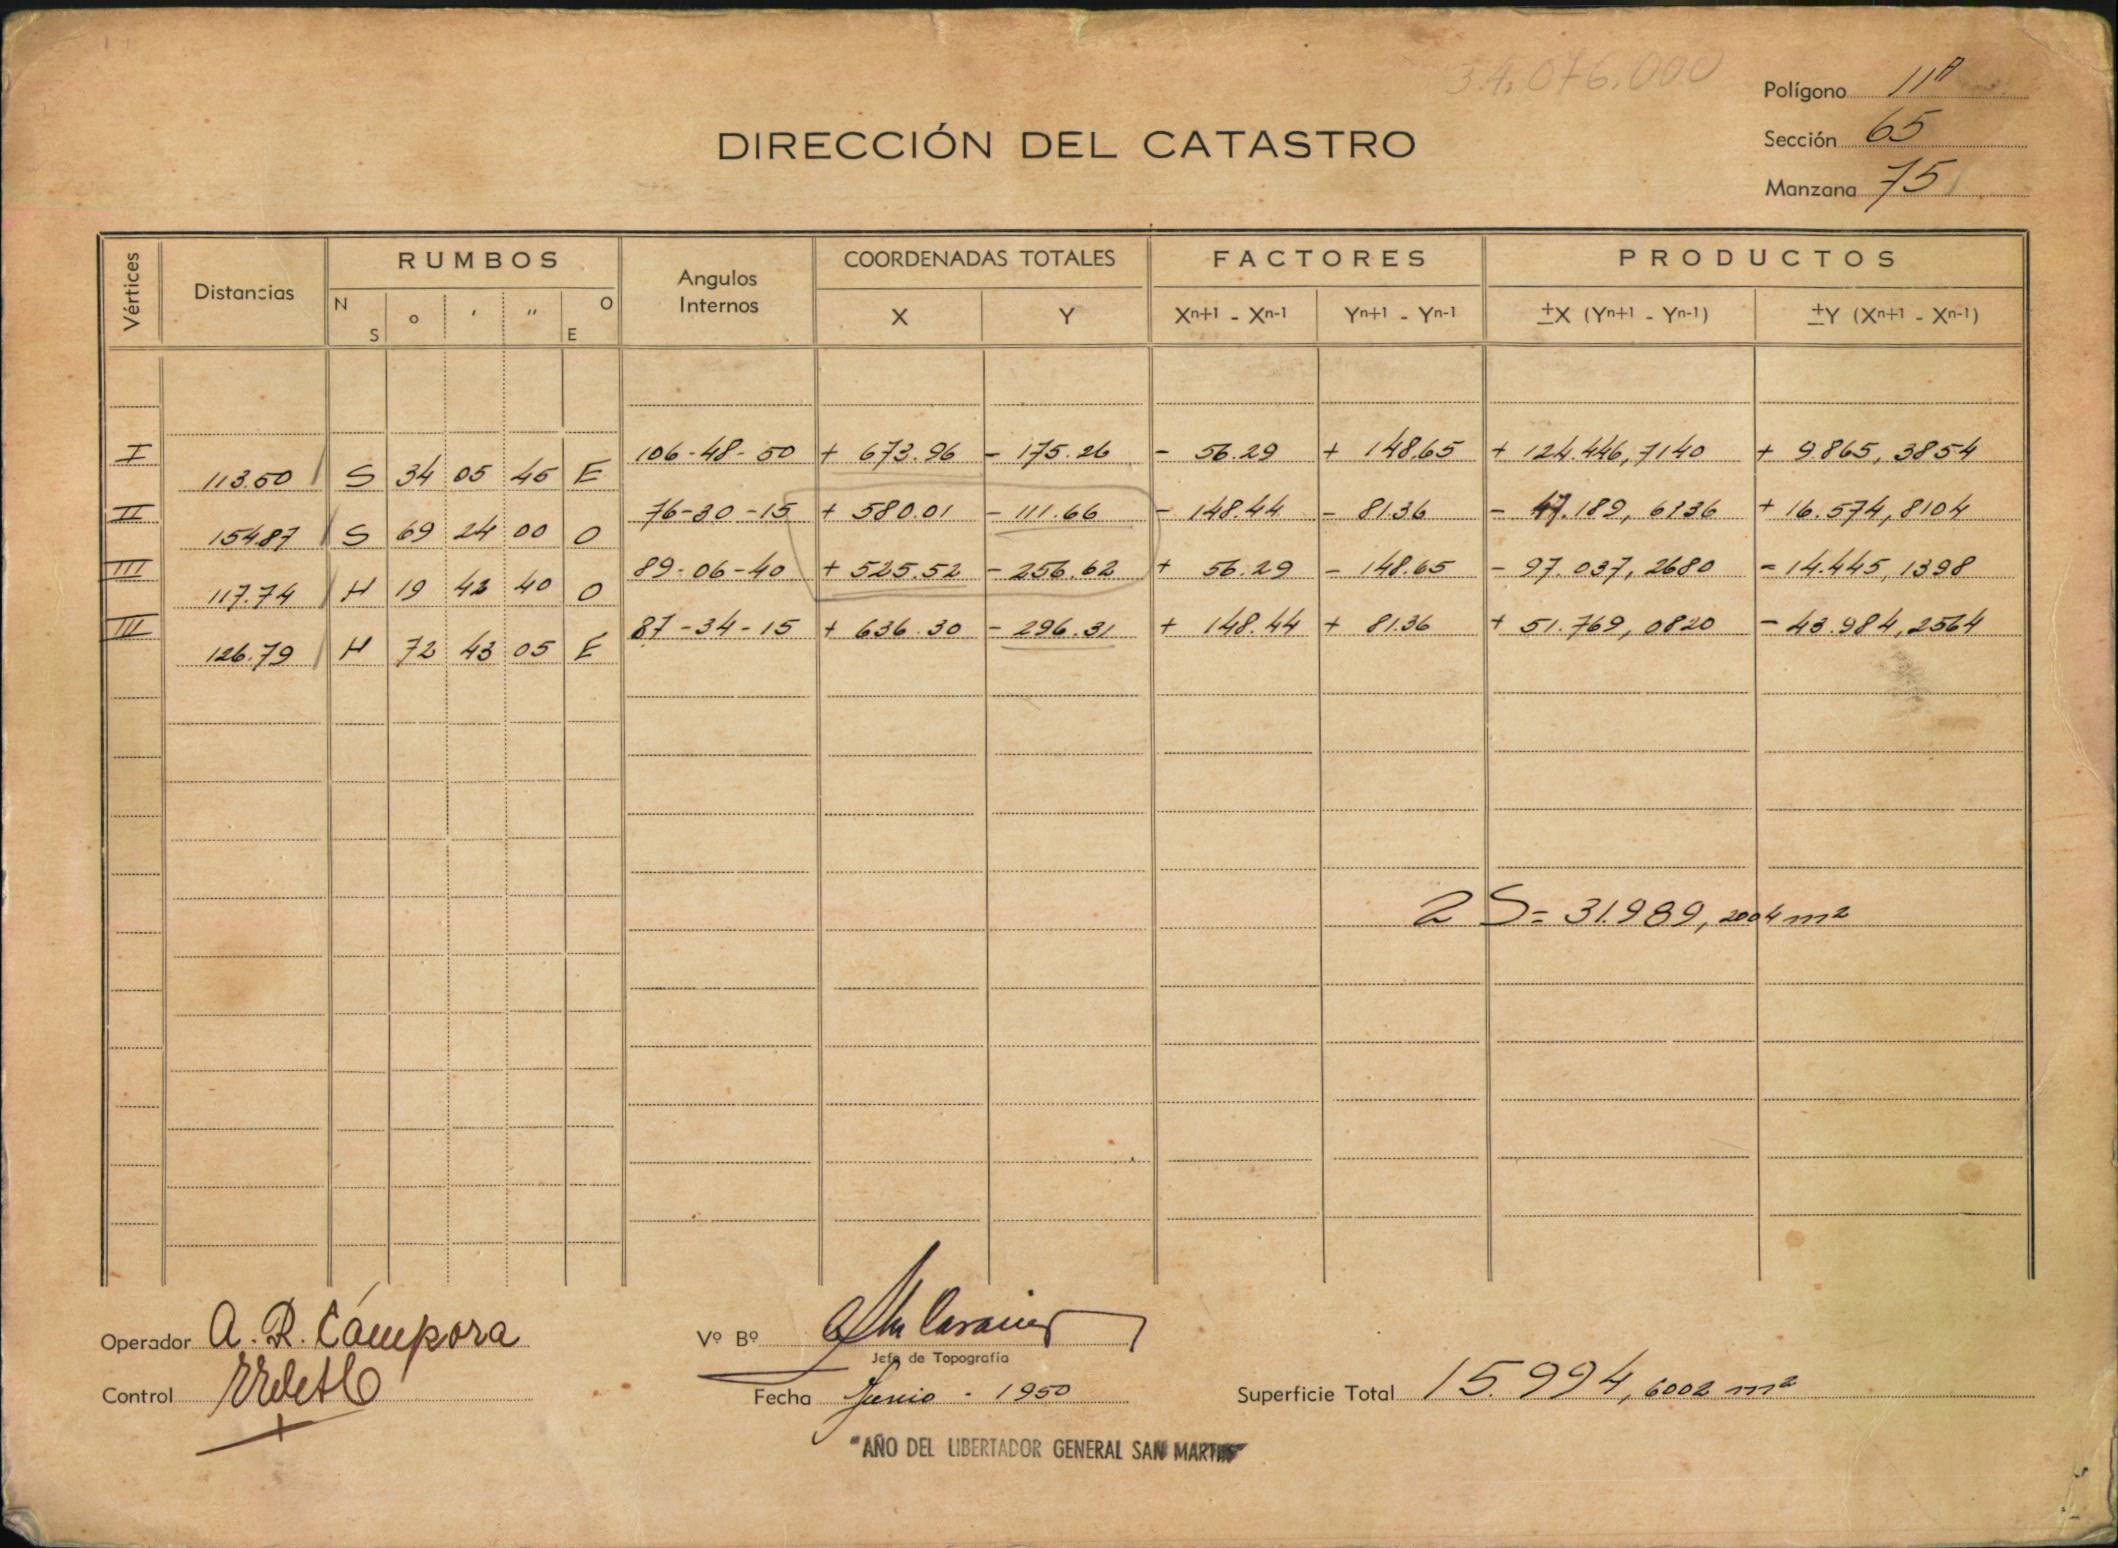 34.076.000
DIRECCIÓN DEL CATASTRO
Polígono 11A
Sección 65
Manzana 75
Vértices Distancias RUMBOS Angulos Internos COORDENADAS TOTALES FACTORES PRODUCTOS
N S o ' " O E X Y Xn+1 - Xn-1 Yn+1 - Yn-1 ±X (Yn+1 - Yn-1) ±Y (Xn+1 - Xn-1)
I 106-48-50 + 673.96 - 175.26 - 56.29 + 184.65 + 124.446,7140 + 9.865,3854
113.50 S 34 05 45 E
II 76-30-15 + 580.01 - 111.66 - 148.44 - 81.36 - 47.189,6136 + 16.574,8104
154.87 S 69 24 00 O
III 89-06-40 + 525.52 - 256.62 + 56.29 - 184.65 - 97.037,2680 - 14.445,1398
117.74 N 19 42 40 O
IIII 87-34-15 + 636.30 - 296.31 + 148.44 + 81.36 + 51.769,0820 - 43.984,2564
126.79 N 72 43 05 E
2 S = 31.989,2004 m²
Operador A. R. Cámpora
Vº Bº
Jefe de Topografía
Control
Fecha Junio - 1950
Superficie Total 15.994,6002 m²
"AÑO DEL LIBERTADOR GENERAL SAN MARTIN"